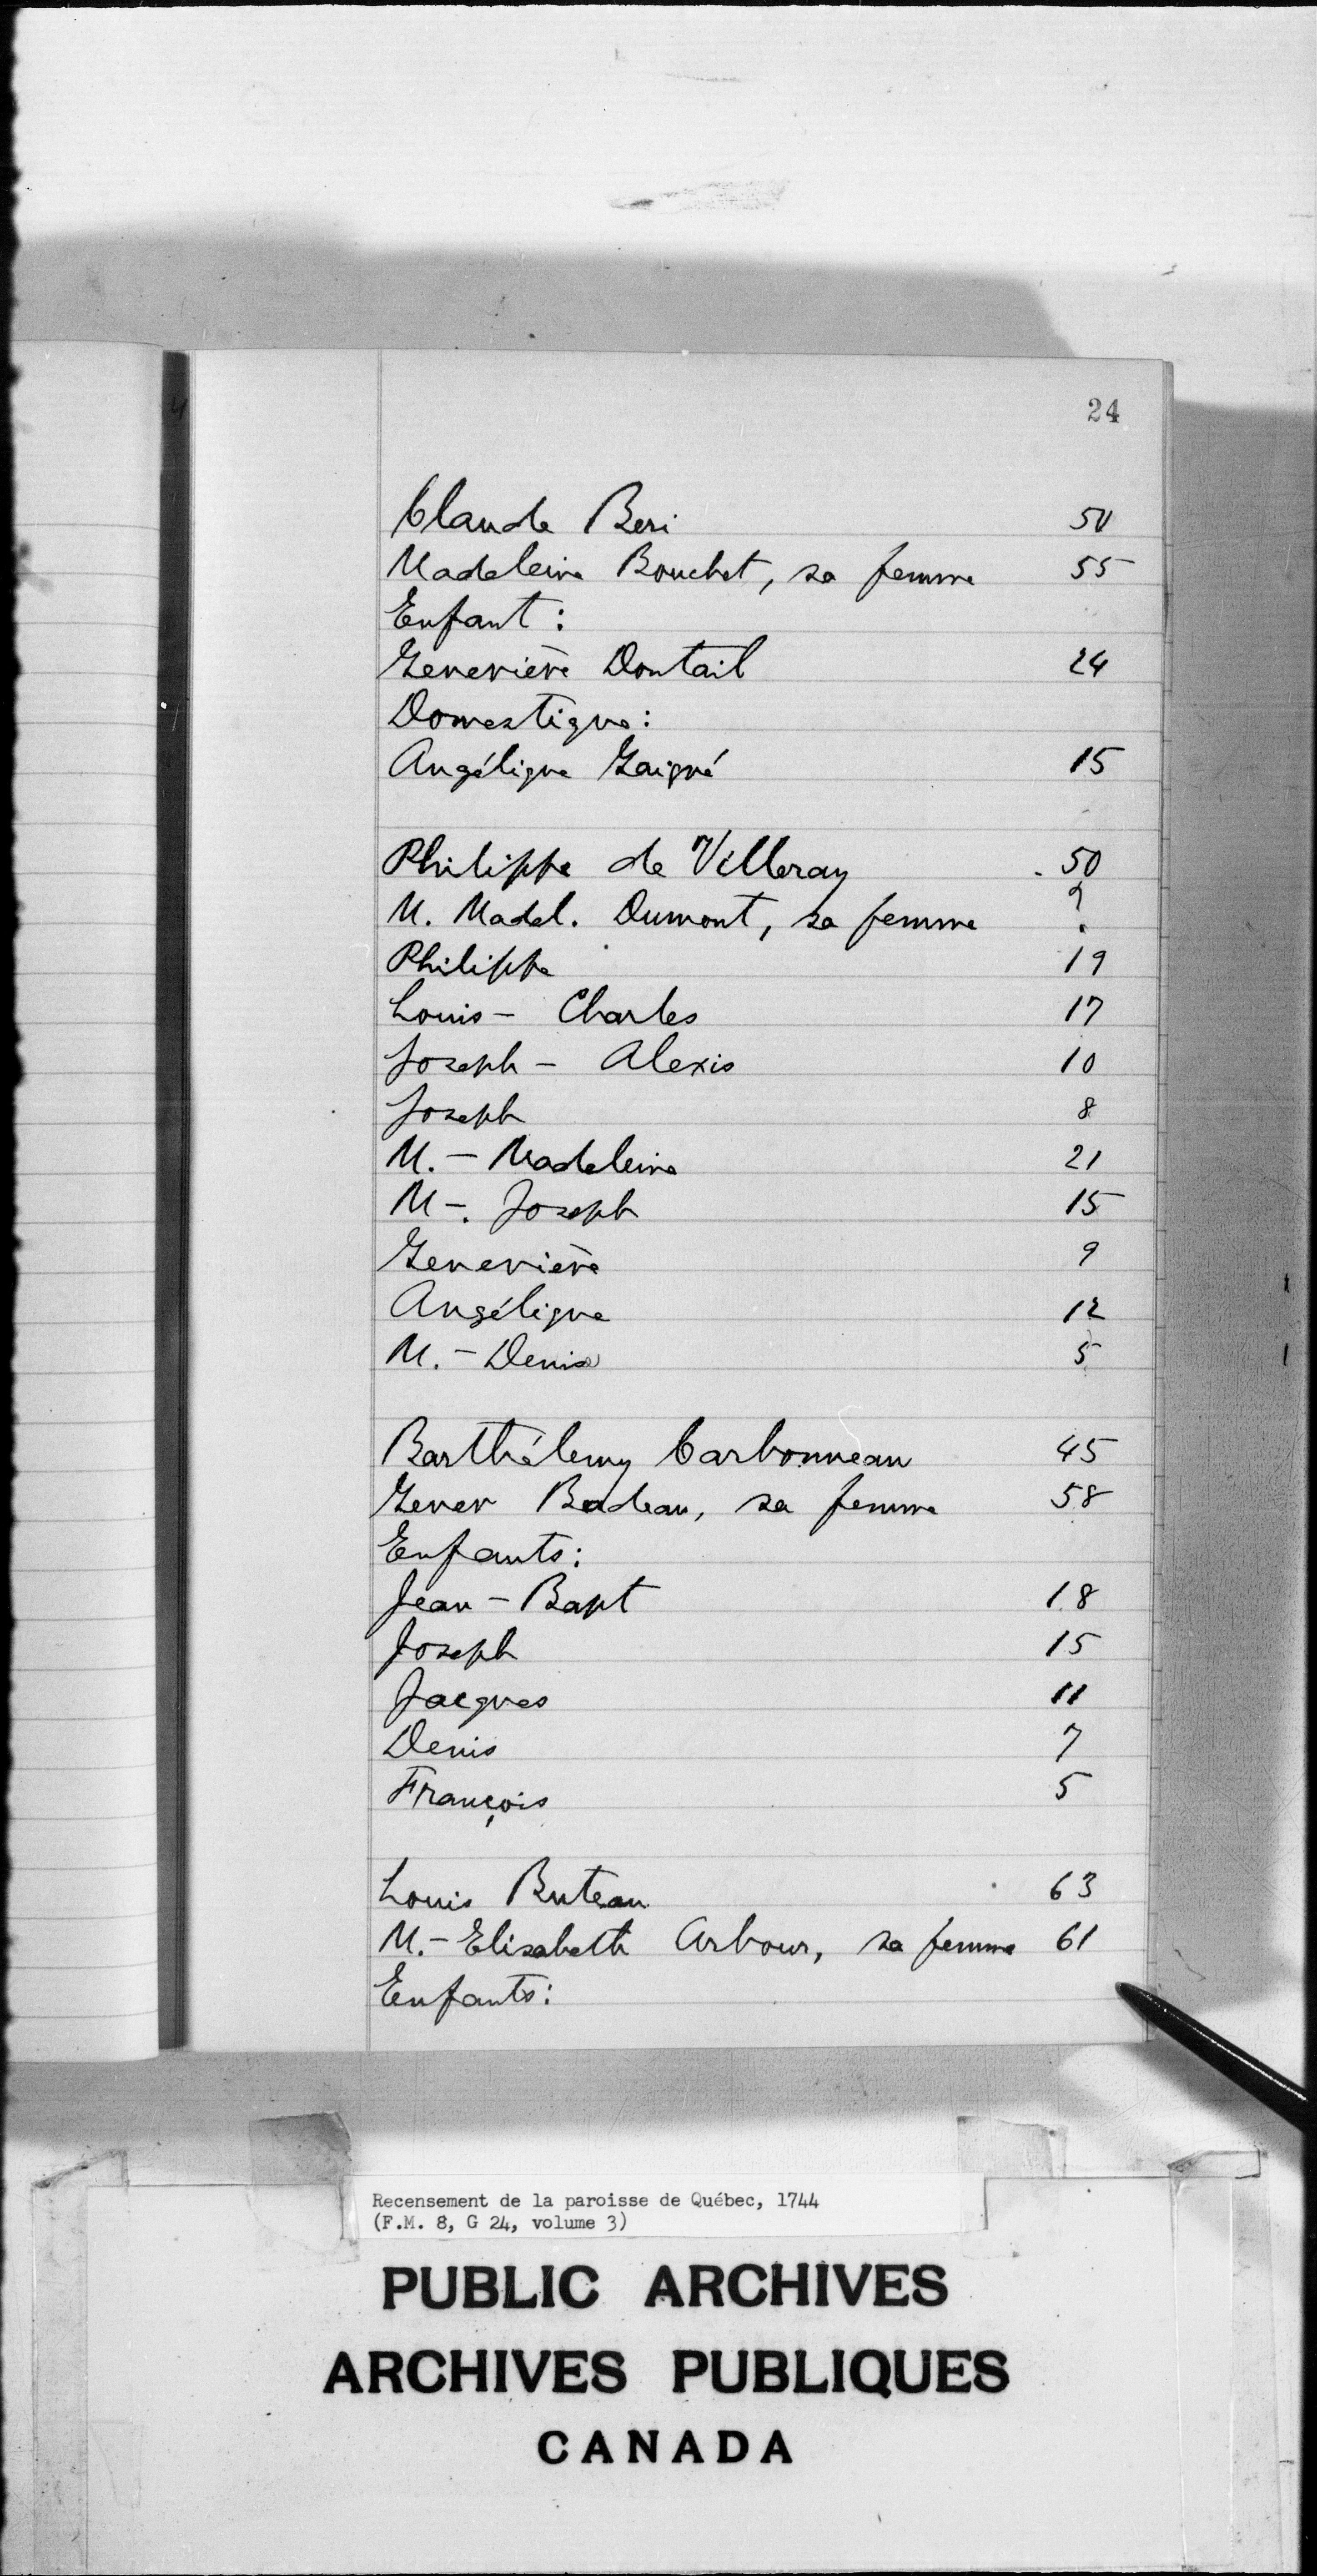 24
Claude Beri 50
Madeleine Bouchet, sa femme 55
Enfant :
Geneviève Dontail 24
Domestique :
Angélique Gaigné 15
Philippe de Villeray 50
M. Madel. Dumont, sa femme ?
Philippe 19
Louis - Charles 17
Joseph - Alexis 10
Joseph 8
M. - Madeleine 21
M -. Joseph 15
Geneviève 9
Angélique 12
M. - Denis 5
Barthélemy Carbonneau 45
Genev Badeau, sa femme 58
Enfants :
Jean - Bapt 18
Joseph 15
Jacques 11
Denis 7
François 5
Louis Buteau 63
M. - Elisabeth Arbour, sa femme 61
Enfants :
Recensement de la paroisse de Québec, 1744
(F.M. 8, G 24, volume 3)
PUBLIC ARCHIVES
ARCHIVES PUBLIQUES
CANADA